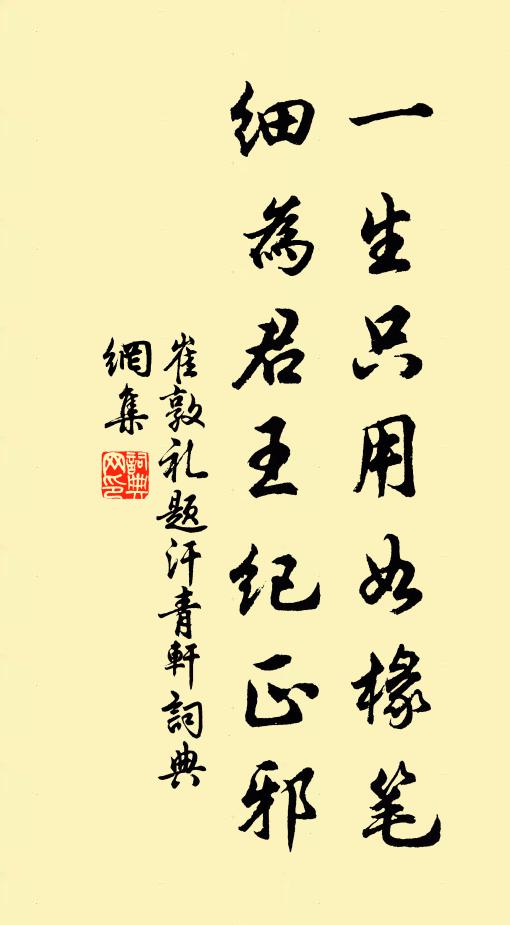 一生只用如椽笔
细为君王纪正邪
崔敦礼题汗青軒詞典
網集
詞典网印